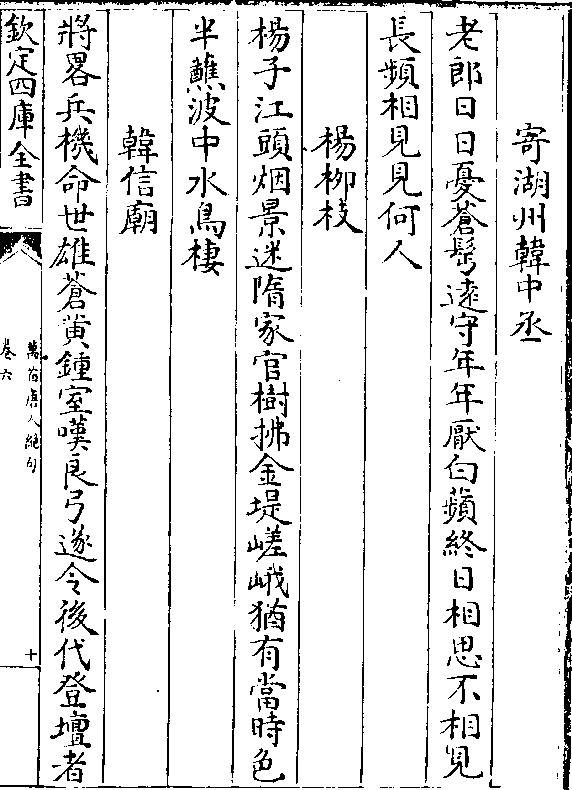 寄湖州韓中丞
老郎日日憂蒼鬂遠守年年厭白蘋終日相思不相見
長頻相見見何人
楊柳枝
楊子江頭烟景迷隋家官樹拂金堤嵯峨猶有當時色
半蘸波中水鳥棲
韓信廟
將畧兵機命世雄蒼黄鍾室嘆良弓遂令後代登壇者
欽定四庫全書
萬首唐人絕句
卷六
十